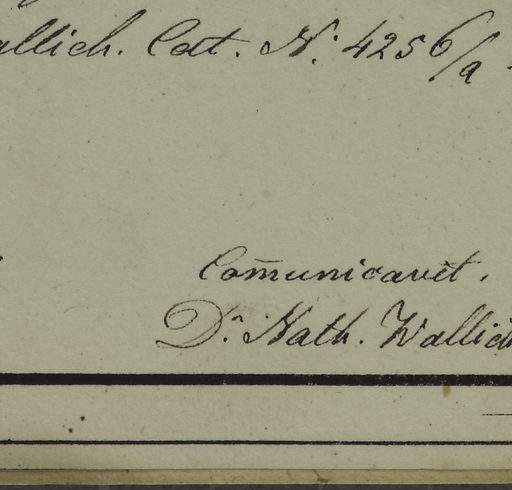 allich. Cat. N: 4256/a.
Com̄unicavit.
Dr. Nath. Wallich